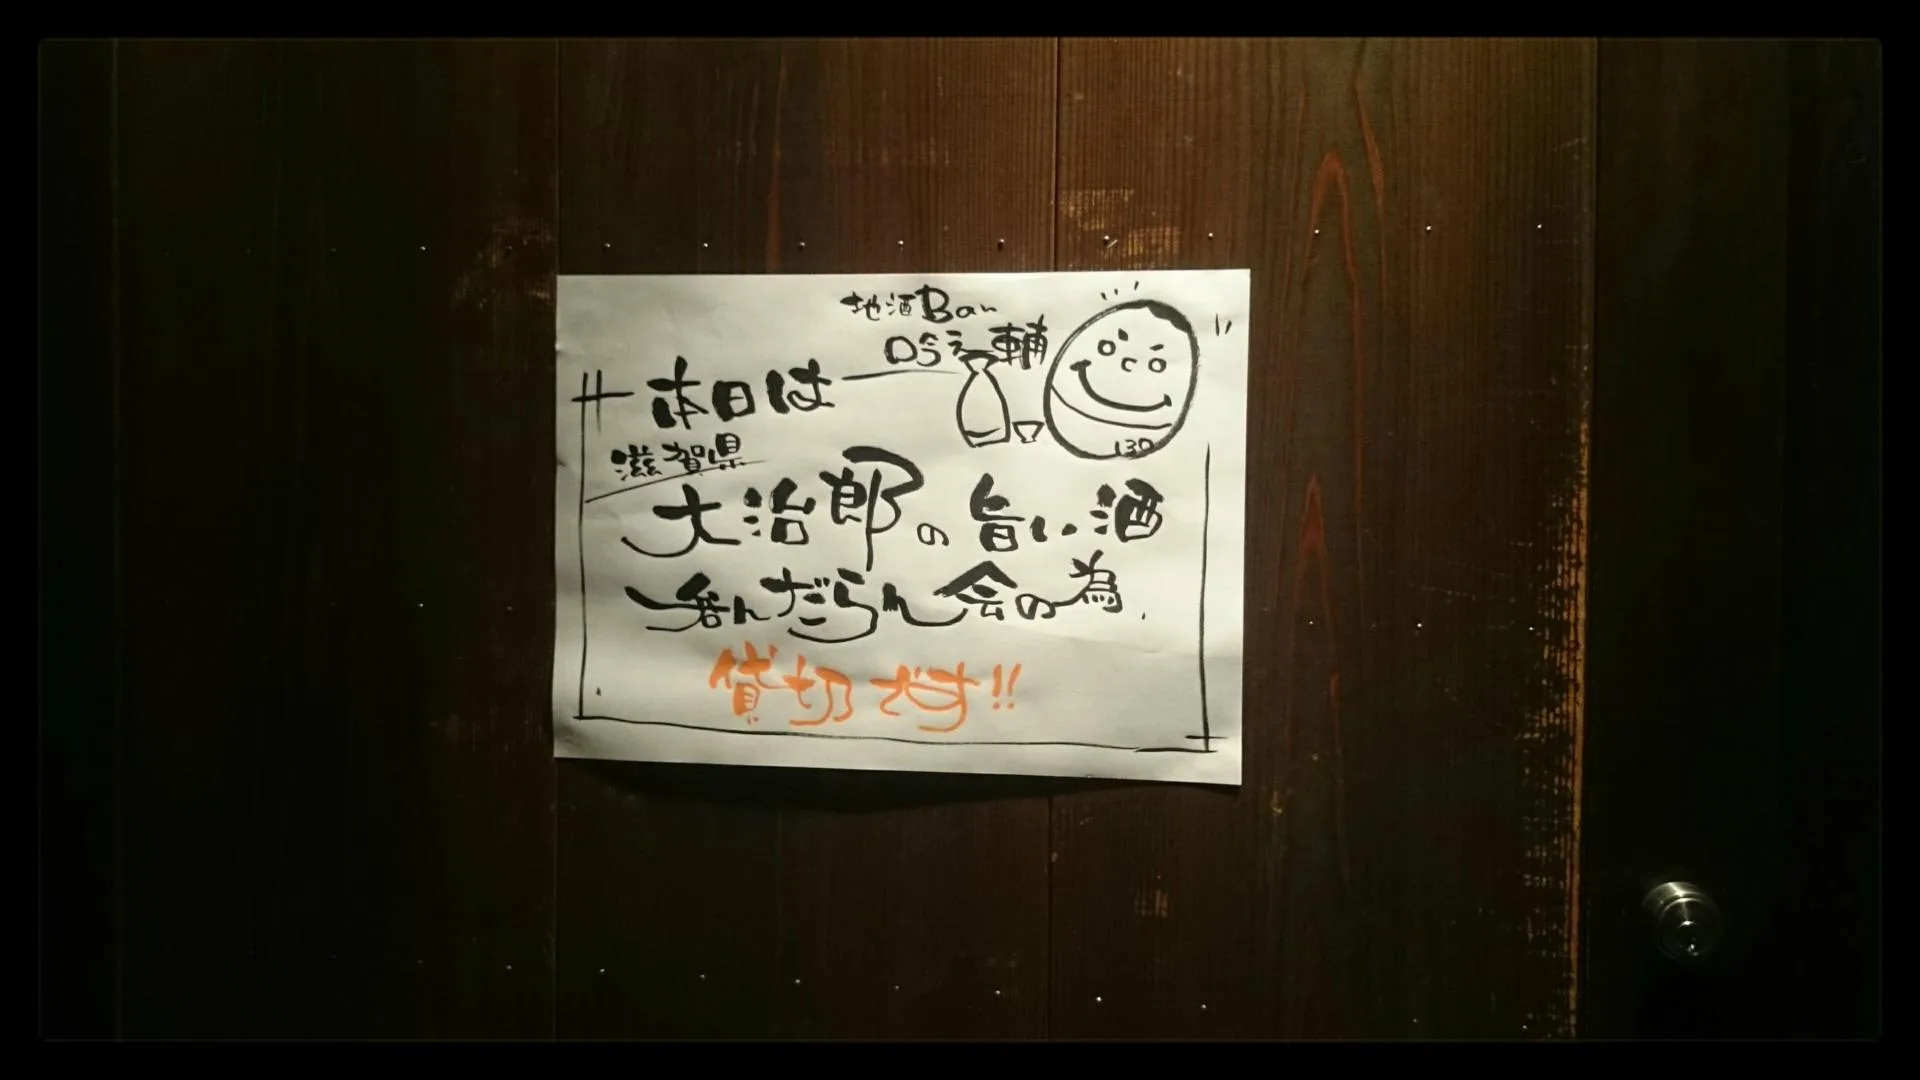 地酒Bar
吟え輔
本日は
滋賀県
大治郎の旨い酒
呑んだらん会の為、
貸切です!!
130